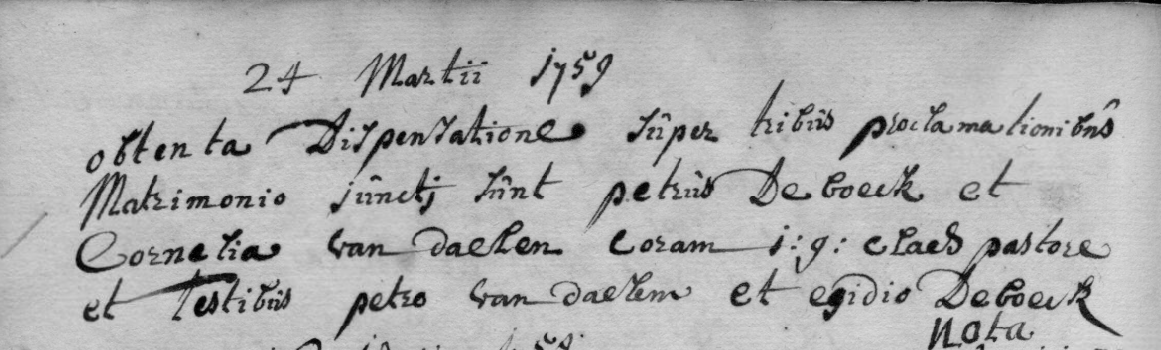 24 Martii 1759
obtenta Dispensatione super tribus proclamationibus
Matrimonio juncti sunt petrus Deboeck et
Cornelia van daelen coram j: g: claes pastore
et Testibus petro van daelem et egidio Deboeck
Nota